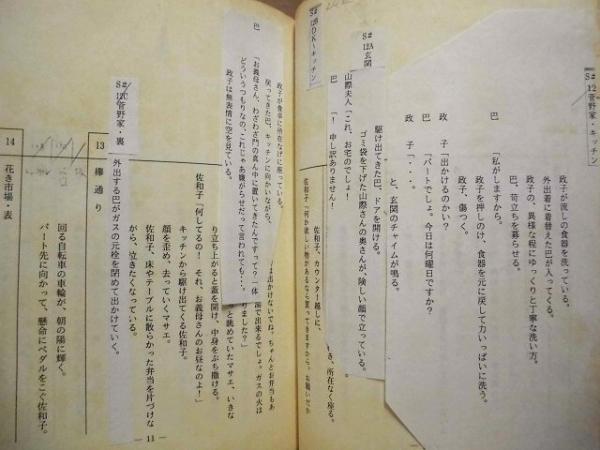 S# 12 菅野家・キッチン
政子が流しの食器を洗っている。
外出着に着替えた巴が入ってくる。
政子の、異様な程にゆっくりと丁寧な洗い方。
巴、苛立ちを募らせる。
巴「私がしますから」
政子を押しのけ、食器を元に戻して力いっぱいに洗う。
政子、傷つく。
政子「出かけるのかい?」
巴「パートでしょ。今日は何曜日ですか?」
政子「・・・」
と、玄関のチャイムが鳴る。
S# 12A 玄関
駆け出てきた巴、ドアを開ける。
ゴミ袋を下げた山際さんの奥さんが、険しい顔で立っている。
山際夫人「これ、お宅のでしょ!」
巴「! 申し訳ありません!」
S# 12B DK〜キッチン
き、所在なく座る。
佐和子、カウンター越しに、
佐和子「何か欲しい物があるなら買ってきますから。お願いだか
政子が食卓に所在なげに座っている。
戻ってきた巴、キッチンに向かいながら、
巴「お義母さん、わざわざ門の真ん中に置いてきたんですって?一体
どういうつもりなの、これじゃあ嫌がらせだって言われても・・」
政子は無表情に空を見ている。
は出かけないでね。ちゃんとお弁当もあ
湯で出来るでしょ。ガスの火は
りました?」
と眺めていたマサエ、いきな
り立ち上がると蓋を開け、中身をぶち撒ける。
佐和子「何してるの! それ、お義母さんのお昼なのよ!」
キッチンから駆け出てくる佐和子。
顔を歪め、去っていくマサエ。
佐和子、床やテーブルに散らかった弁当を片づけな
がら、泣きたくなっている。
S# 12C 菅野家・裏
外出する巴がガスの元栓を閉めて出かけていく。
13 欅通り
回る自転車の車輪が、朝の陽に輝く。
パート先に向かって、懸命にペダルをこぐ佐和子。
14 花き市場・表
— 11 —